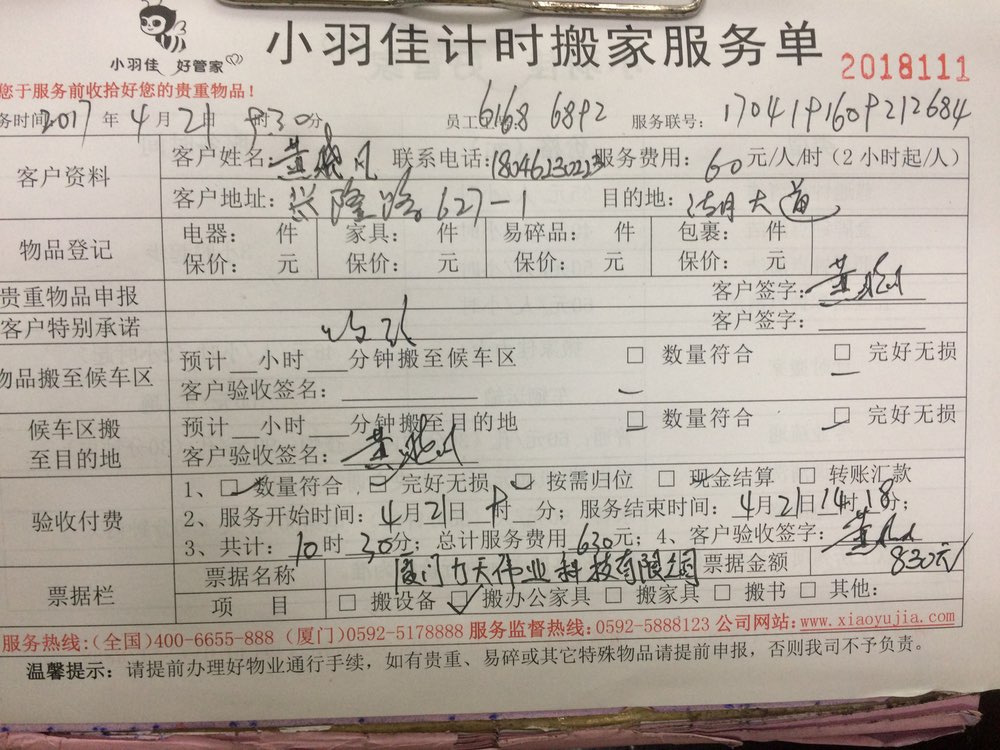 小羽佳 好管家
小羽佳计时搬家服务单
2018111
您于服务前收拾好您的贵重物品!
务时间:2017 年 4 月 21 日 时30分 员工工号: 6168 6892 服务联号: 1704191609212684
客户资料
客户姓名: 黄 联系电话:18046230223 服务费用: 60 元/人/时(2 小时起/人)
客户地址: 兴隆路627-1 目的地: 大道
物品登记
电器: 件 家具: 件 易碎品: 件 包裹: 件
保价: 元 保价: 元 保价: 元 保价: 元
贵重物品申报 客户签字: 黄
客户特别承诺 客户签字:
物品搬至候车区
预计 小时 分钟搬至候车区 □ 数量符合 □ 完好无损
客户验收签名:
候车区搬
至目的地
预计 小时 分钟搬至目的地 □ 数量符合 □ 完好无损
客户验收签名: 黄
验收付费
1、□ 数量符合 □ 完好无损 □ 按需归位 □ 现金结算 □ 转账汇款
2、服务开始时间: 4月21日 时 分; 服务结束时间: 4月21日14时18分;
3、共计: 10 时 30分; 总计服务费用 630元; 4、客户验收签字: 黄
票据栏
票据名称 厦门力天伟业科技有限公司 票据金额 830元
项 目 □ 搬设备 □ 搬办公家具 □ 搬家具 □ 搬书 □ 其他:
服务热线:(全国)400-6655-888 (厦门)0592-5178888 服务监督热线:0592-5888123 公司网站:www.xiaoyujia.com
温馨提示: 请提前办理好物业通行手续, 如有贵重、易碎或其它特殊物品请提前申报, 否则我司不予负责。